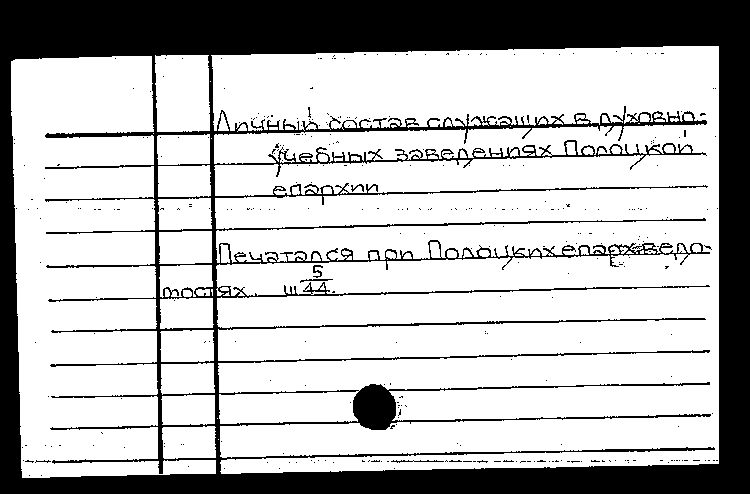 Личный состав служащих в духовно-
учебных заведениях Полоцкой
епархии
Печатался при Полоцких епарх. ведо-
мостях. Ш 5/44.